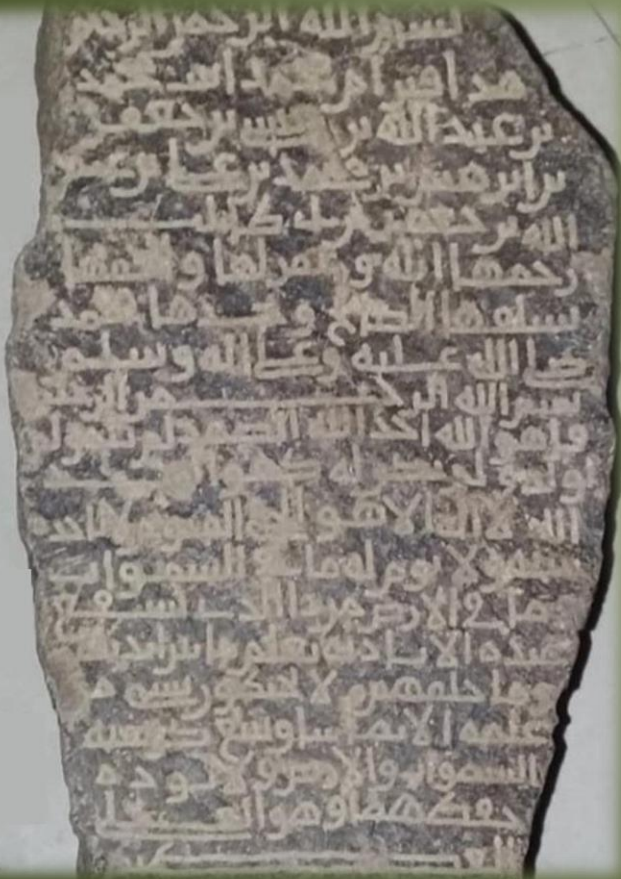 بسم الله الرحمن الرحيم
هذا قبر ام محمد ابنت محمد
بن عبد الله بن عيسى بن جعفر
بن ابرهيم بن محمد بن علي بن عبد
الله بن جعفر بن ابي طلب
رحمها الله وغفر لها والحقها
بسلفها الصالح ونبيها محمد
صلى الله عليه وعلى اله وسلم
بسم الله الرحمن الرحيم
قل هو الله احد الله الصمد لم يلد ولم
يولد ولم يكن له كفوا احد
الله لا اله الا هو الحي القيوم لا تاخذه
سنة ولا نوم له ما في السموات
وما في الارض من ذا الذي يشفع
عنده الا باذنه يعلم ما بين ايديهم
وما خلفهم ولا يحيطون بشي من
علمه الا بما شا وسع كرسيه
السموات والارض ولا يوده
حفظهما وهو العلي
العظيم